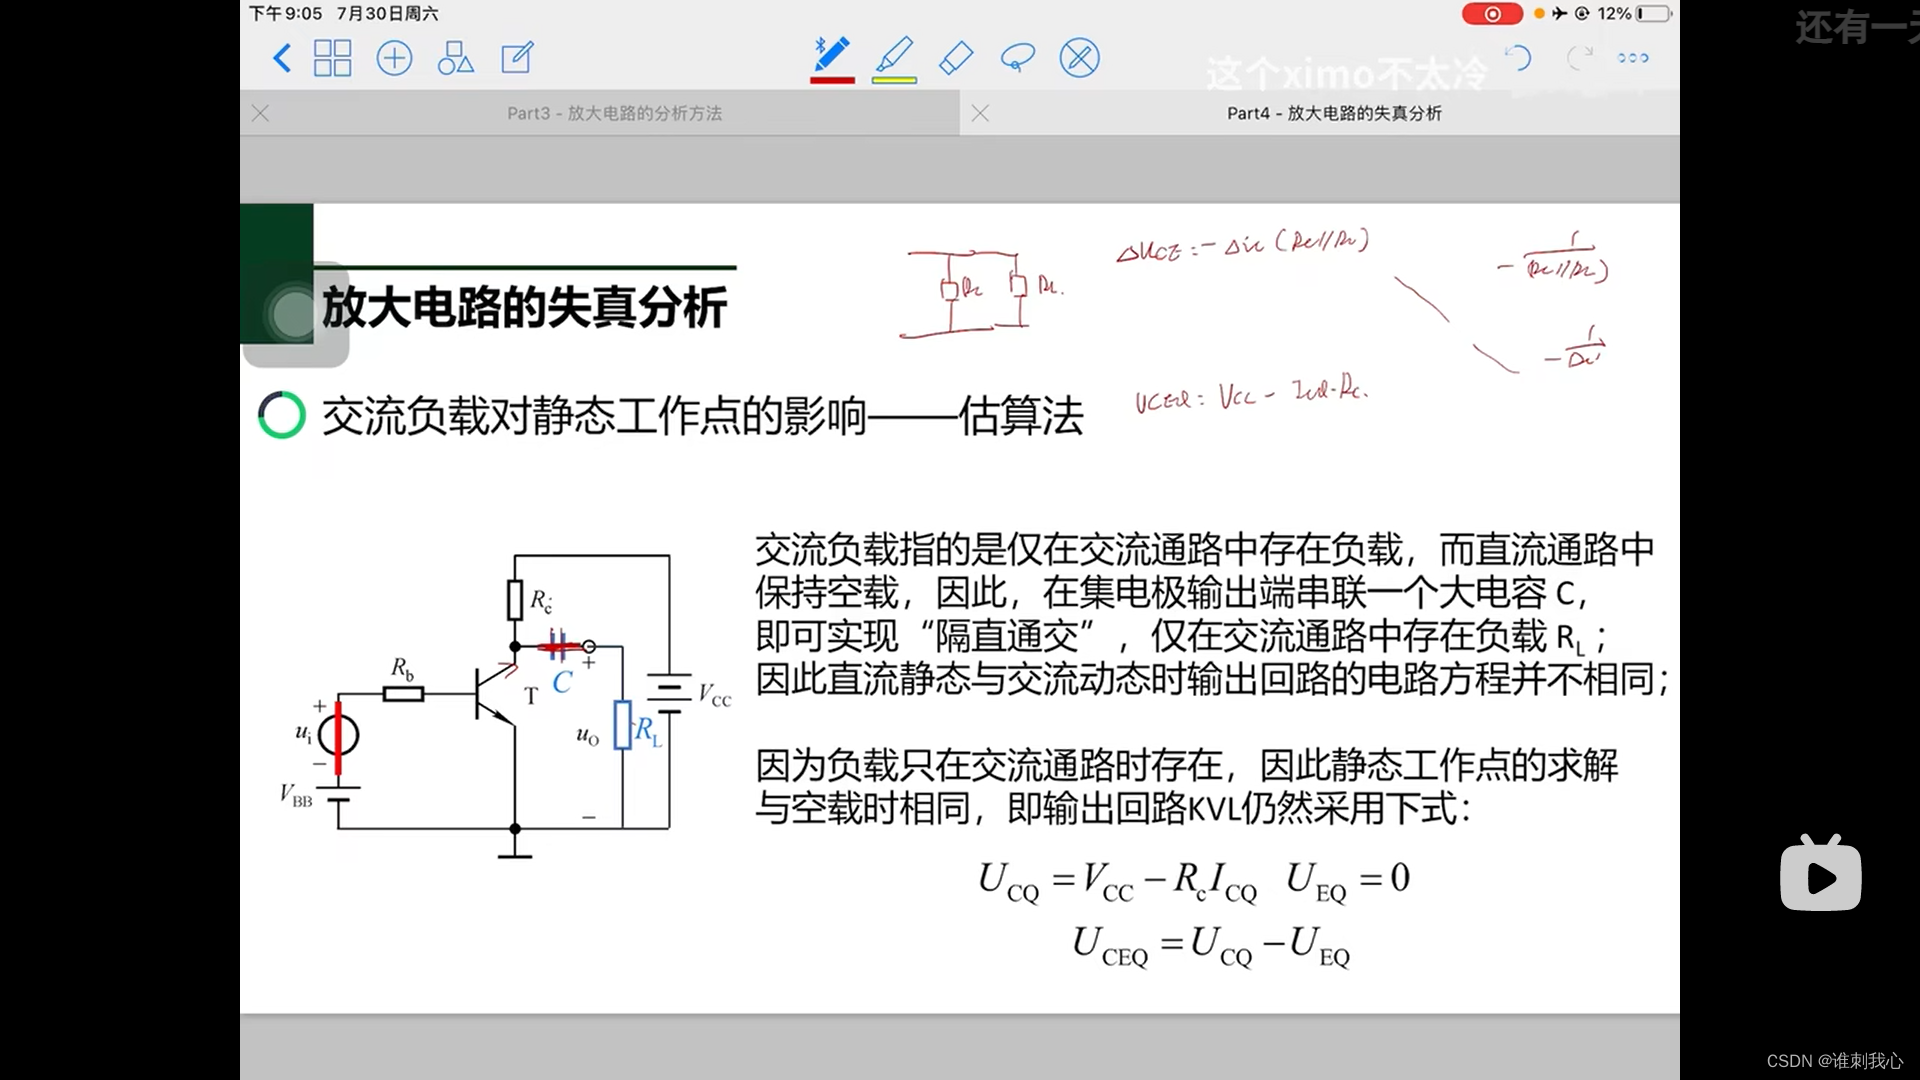 下午9:05 7月30日周六
12%
还有一天
这个ximo不太冷
Part3 - 放大电路的分析方法
Part4 - 放大电路的失真分析
放大电路的失真分析
交流负载对静态工作点的影响——估算法
Rc
Rb
T
C
+
VCC
+
ui
−
uO
RL
VBB
−
交流负载指的是仅在交流通路中存在负载，而直流通路中
保持空载，因此，在集电极输出端串联一个大电容 C，
即可实现“隔直通交”，仅在交流通路中存在负载 RL；
因此直流静态与交流动态时输出回路的电路方程并不相同；
因为负载只在交流通路时存在，因此静态工作点的求解
与空载时相同，即输出回路KVL仍然采用下式：
UCQ = VCC − RcICQ UEQ = 0
UCEQ = UCQ − UEQ
CSDN @谁刺我心